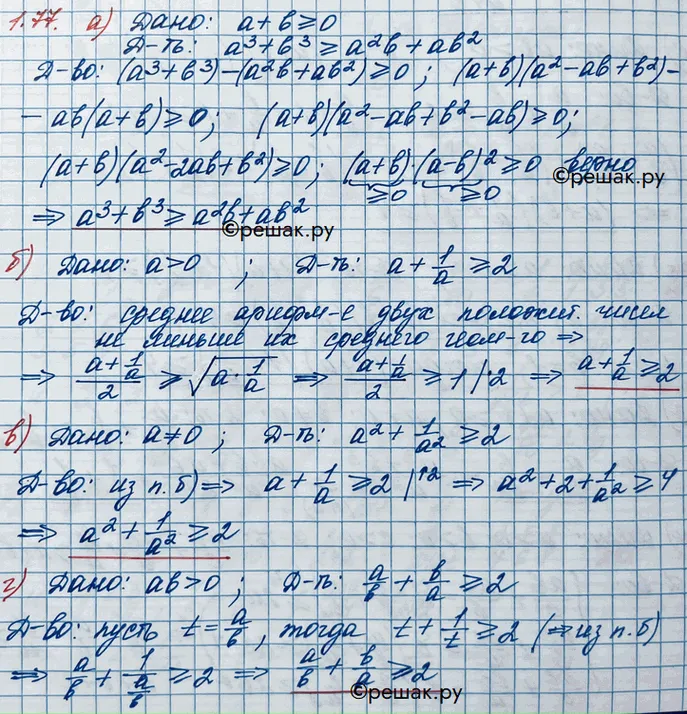 1.77. а) Дано: a+b≥0
Д-ть: a³+b³≥a²b+ab²
Д-во: (a³+b³)-(a²b+ab²)≥0; (a+b)(a²-ab+b²)-
-ab(a+b)≥0; (a+b)(a²-ab+b²-ab)≥0;
(a+b)(a²-2ab+b²)≥0; (a+b)·(a-b)²≥0 верно
≥0 ≥0
©решак.ру
⇒ a³+b³≥a²b+ab²
©решак.ру
б) Дано: a>0 ; Д-ть: a+1/a≥2
Д-во: среднее арифм-е двух положит. чисел
не меньше их среднего геом-го ⇒
⇒ (a+1/a)/2 ≥ √(a·1/a) ⇒ (a+1/a)/2 ≥ 1 |·2 ⇒ a+1/a≥2
в) Дано: a≠0 ; Д-ть: a²+1/a²≥2
Д-во: из п.б) ⇒ a+1/a≥2 |↑2 ⇒ a²+2+1/a²≥4
⇒ a²+1/a²≥2
г) Дано: ab>0 ; Д-ть: a/b+b/a≥2
Д-во: пусть t=a/b, тогда t+1/t≥2 (⇒ из п.б)
⇒ a/b+1/(a/b)≥2 ⇒ a/b+b/a≥2
©решак.ру